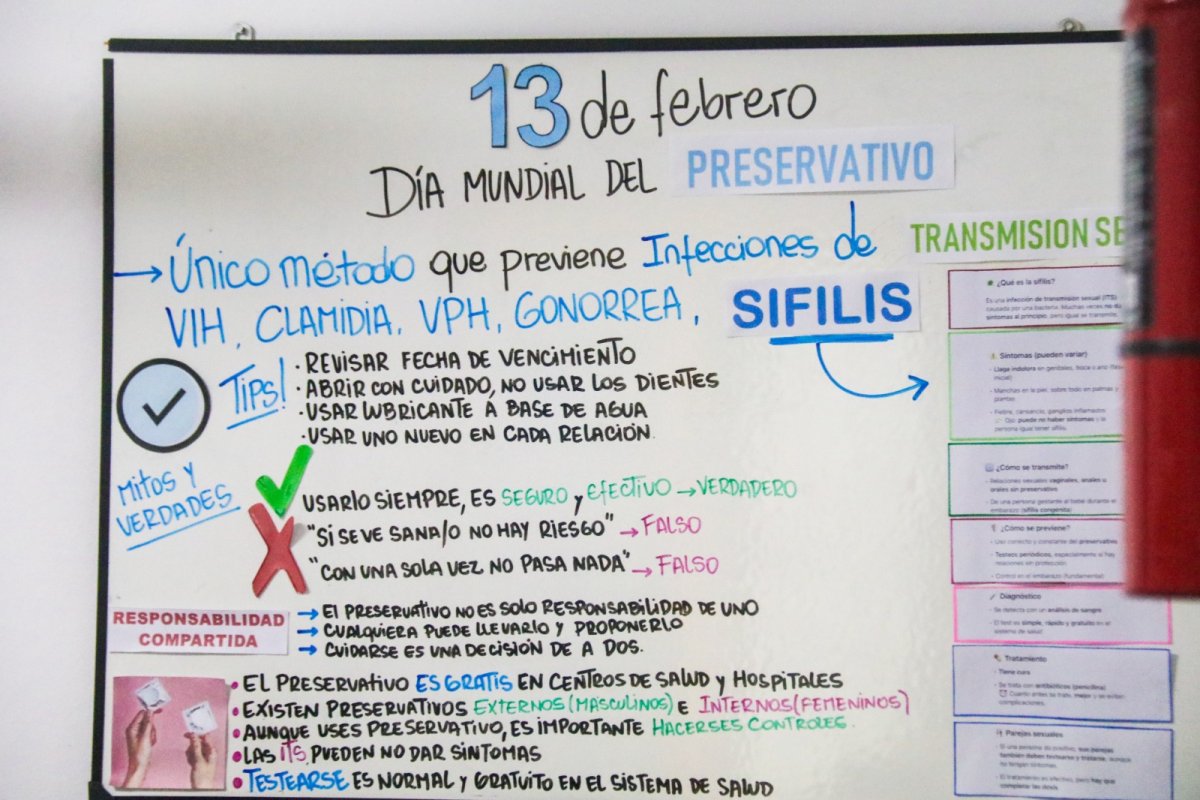 13 de febrero
DÍA MUNDIAL DEL PRESERVATIVO
→ Único método que previene Infecciones de TRANSMISION SE
VIH, CLAMIDIA, VPH, GONORREA, SIFILIS
Tips!
· REVISAR FECHA DE VENCIMIENTO
· ABRIR CON CUIDADO, NO USAR LOS DIENTES
· USAR LUBRICANTE A BASE DE AGUA
· USAR UNO NUEVO EN CADA RELACIÓN.
Mitos y
VERDADES
USARLO SIEMPRE, ES SEGURO y EFECTIVO → VERDADERO
"SI SE VE SANA/O NO HAY RIESGO" → FALSO
"CON UNA SOLA VEZ NO PASA NADA" → FALSO
RESPONSABILIDAD
COMPARTIDA
→ El PRESERVATIVO NO ES SOLO RESPONSABILIDAD DE UNO
→ CUALQUIERA PUEDE LLEVARLO Y PROPONERLO
→ CUIDARSE ES UNA DECISIÓN DE A DOS.
• EL PRESERVATIVO ES GRATIS EN CENTROS DE SALUD y HOSPITALES
• EXISTEN PRESERVATIVOS EXTERNOS (MASCULINOS) E INTERNOS (FEMENINOS)
• AUNQUE USES PRESERVATIVO, ES IMPORTANTE HACERSES CONTROLES.
• LAS ITS PUEDEN NO DAR SINTOMAS
• TESTEARSE ES NORMAL y GRATUITO EN EL SISTEMA DE SALUD
¿Qué es la sífilis?
Es una infección de transmisión sexual (ITS)
causada por una bacteria. Muchas veces no da
síntomas al principio, pero igual se transmite.
Síntomas (pueden variar)
- Llaga indolora en genitales, boca o ano (fase
inicial)
- Manchas en la piel, sobre todo en palmas y
plantas
- Fiebre, cansancio, ganglios inflamados
Ojo: puede no haber síntomas y la
persona igual tener sífilis.
¿Cómo se transmite?
- Relaciones sexuales vaginales, anales u
orales sin preservativo
- De una persona gestante al bebé durante el
embarazo (sífilis congénita)
¿Cómo se previene?
- Uso correcto y constante del preservativo
- Testeos periódicos, especialmente si hay
relaciones sin protección
- Control en el embarazo (fundamental)
Diagnóstico
- Se detecta con un análisis de sangre
- El test es simple, rápido y gratuito en el
sistema de salud
Tratamiento
- Tiene cura
- Se trata con antibióticos (penicilina)
Cuanto antes se trate, mejor y se evitan
complicaciones.
Parejas sexuales
- Si una persona da positivo, sus parejas
también deben testearse y tratarse, aunque
no tengan síntomas.
- El tratamiento es efectivo, pero hay que
completar las dosis.